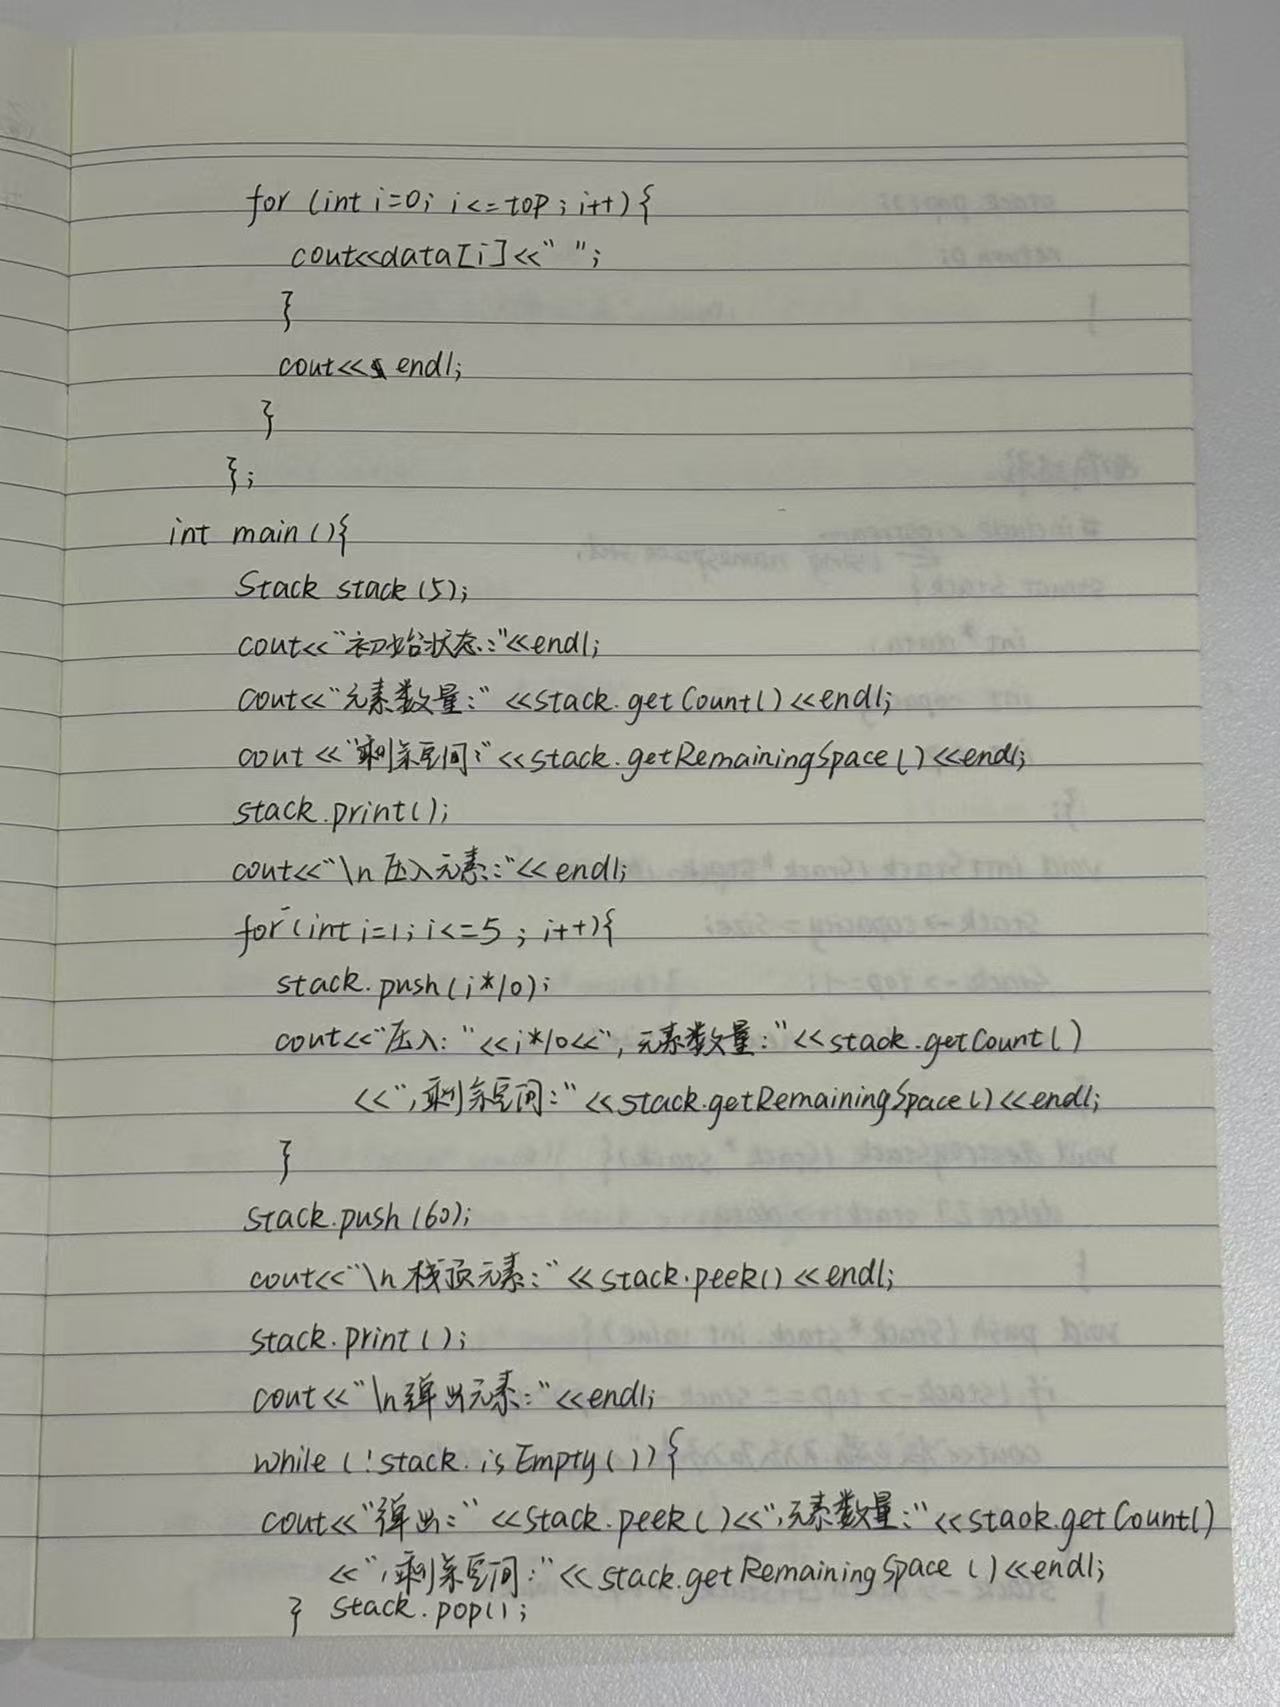 for (int i=0; i<=top; i++){
cout<<data[i]<<" ";
}
cout<< endl;
}
};
int main(){
Stack stack(5);
cout<<"初始状态:"<<endl;
cout<<"元素数量:"<<stack.getCount()<<endl;
cout<<"剩余空间:"<<stack.getRemainingSpace()<<endl;
stack.print();
cout<<"\n压入元素:"<<endl;
for(int i=1; i<=5; i++){
stack.push(i*10);
cout<<"压入:"<<i*10<<",元素数量:"<<stack.getCount()
<<",剩余空间:"<<stack.getRemainingSpace()<<endl;
}
stack.push(60);
cout<<"\n栈顶元素:"<<stack.peek()<<endl;
stack.print();
cout<<"\n弹出元素:"<<endl;
while(!stack.isEmpty()){
cout<<"弹出:"<<stack.peek()<<",元素数量:"<<stack.getCount()
<<",剩余空间:"<<stack.getRemainingSpace()<<endl;
} stack.pop();